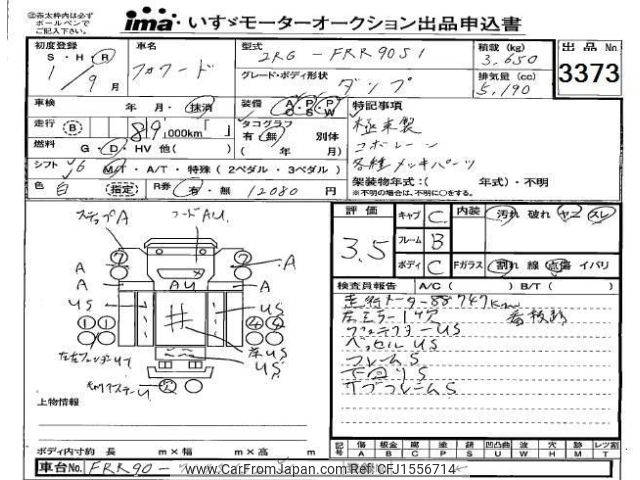 ㊟赤太枠内は必ず
ボールペンで
ご記入下さい。
ima いすゞモーターオークション出品申込書
初度登録
S・H・R
1/9月
車名
フォワード
型式
2RG-FRR90S1
グレード・ボディ形状
ダンプ
積載 (kg)
3,650
排気量 (cc)
5,190
出品 No
3373
車検 年 月・抹消
装備 A/C P/S P/W
特記事項
極東製
コボレーン
各種メッキパーツ
走行 B 89,000km
タコグラフ
有・無 別体
( 年 月)
燃料 G・D・HV 他( )
シフト 6 M/T・A/T・特殊 (2ペダル・3ペダル)
色 白 指定
R券 有・無 12080 円
架装物年式:( 年式)・不明
※不明の場合は、不明に○をする。
ステップA フードAU
A A
A AU A
US US
床US
US
評価
3.5
キャブ C
フレーム B
ボディ C
内装 汚れ 破れ ヤニ スレ
Fガラス 割れ 線 点傷 イバリ
検査員報告 A/C ( ) B/T ( )
走行メーター88747km
左ミラー1ケ穴 看板跡
プロテクターUS
ベッセルUS
フレームS
下回りS
サブフレームS
上物情報
ボディ内寸約 長 m×幅 m×高 m
記号 傷A 鈑金B 腐C 塗P 錆S 凹凸曲U 波W 穴H 無M レンタT
車台No. FRR90-
www.CarFromJapan.com Ref: CFJ1556714